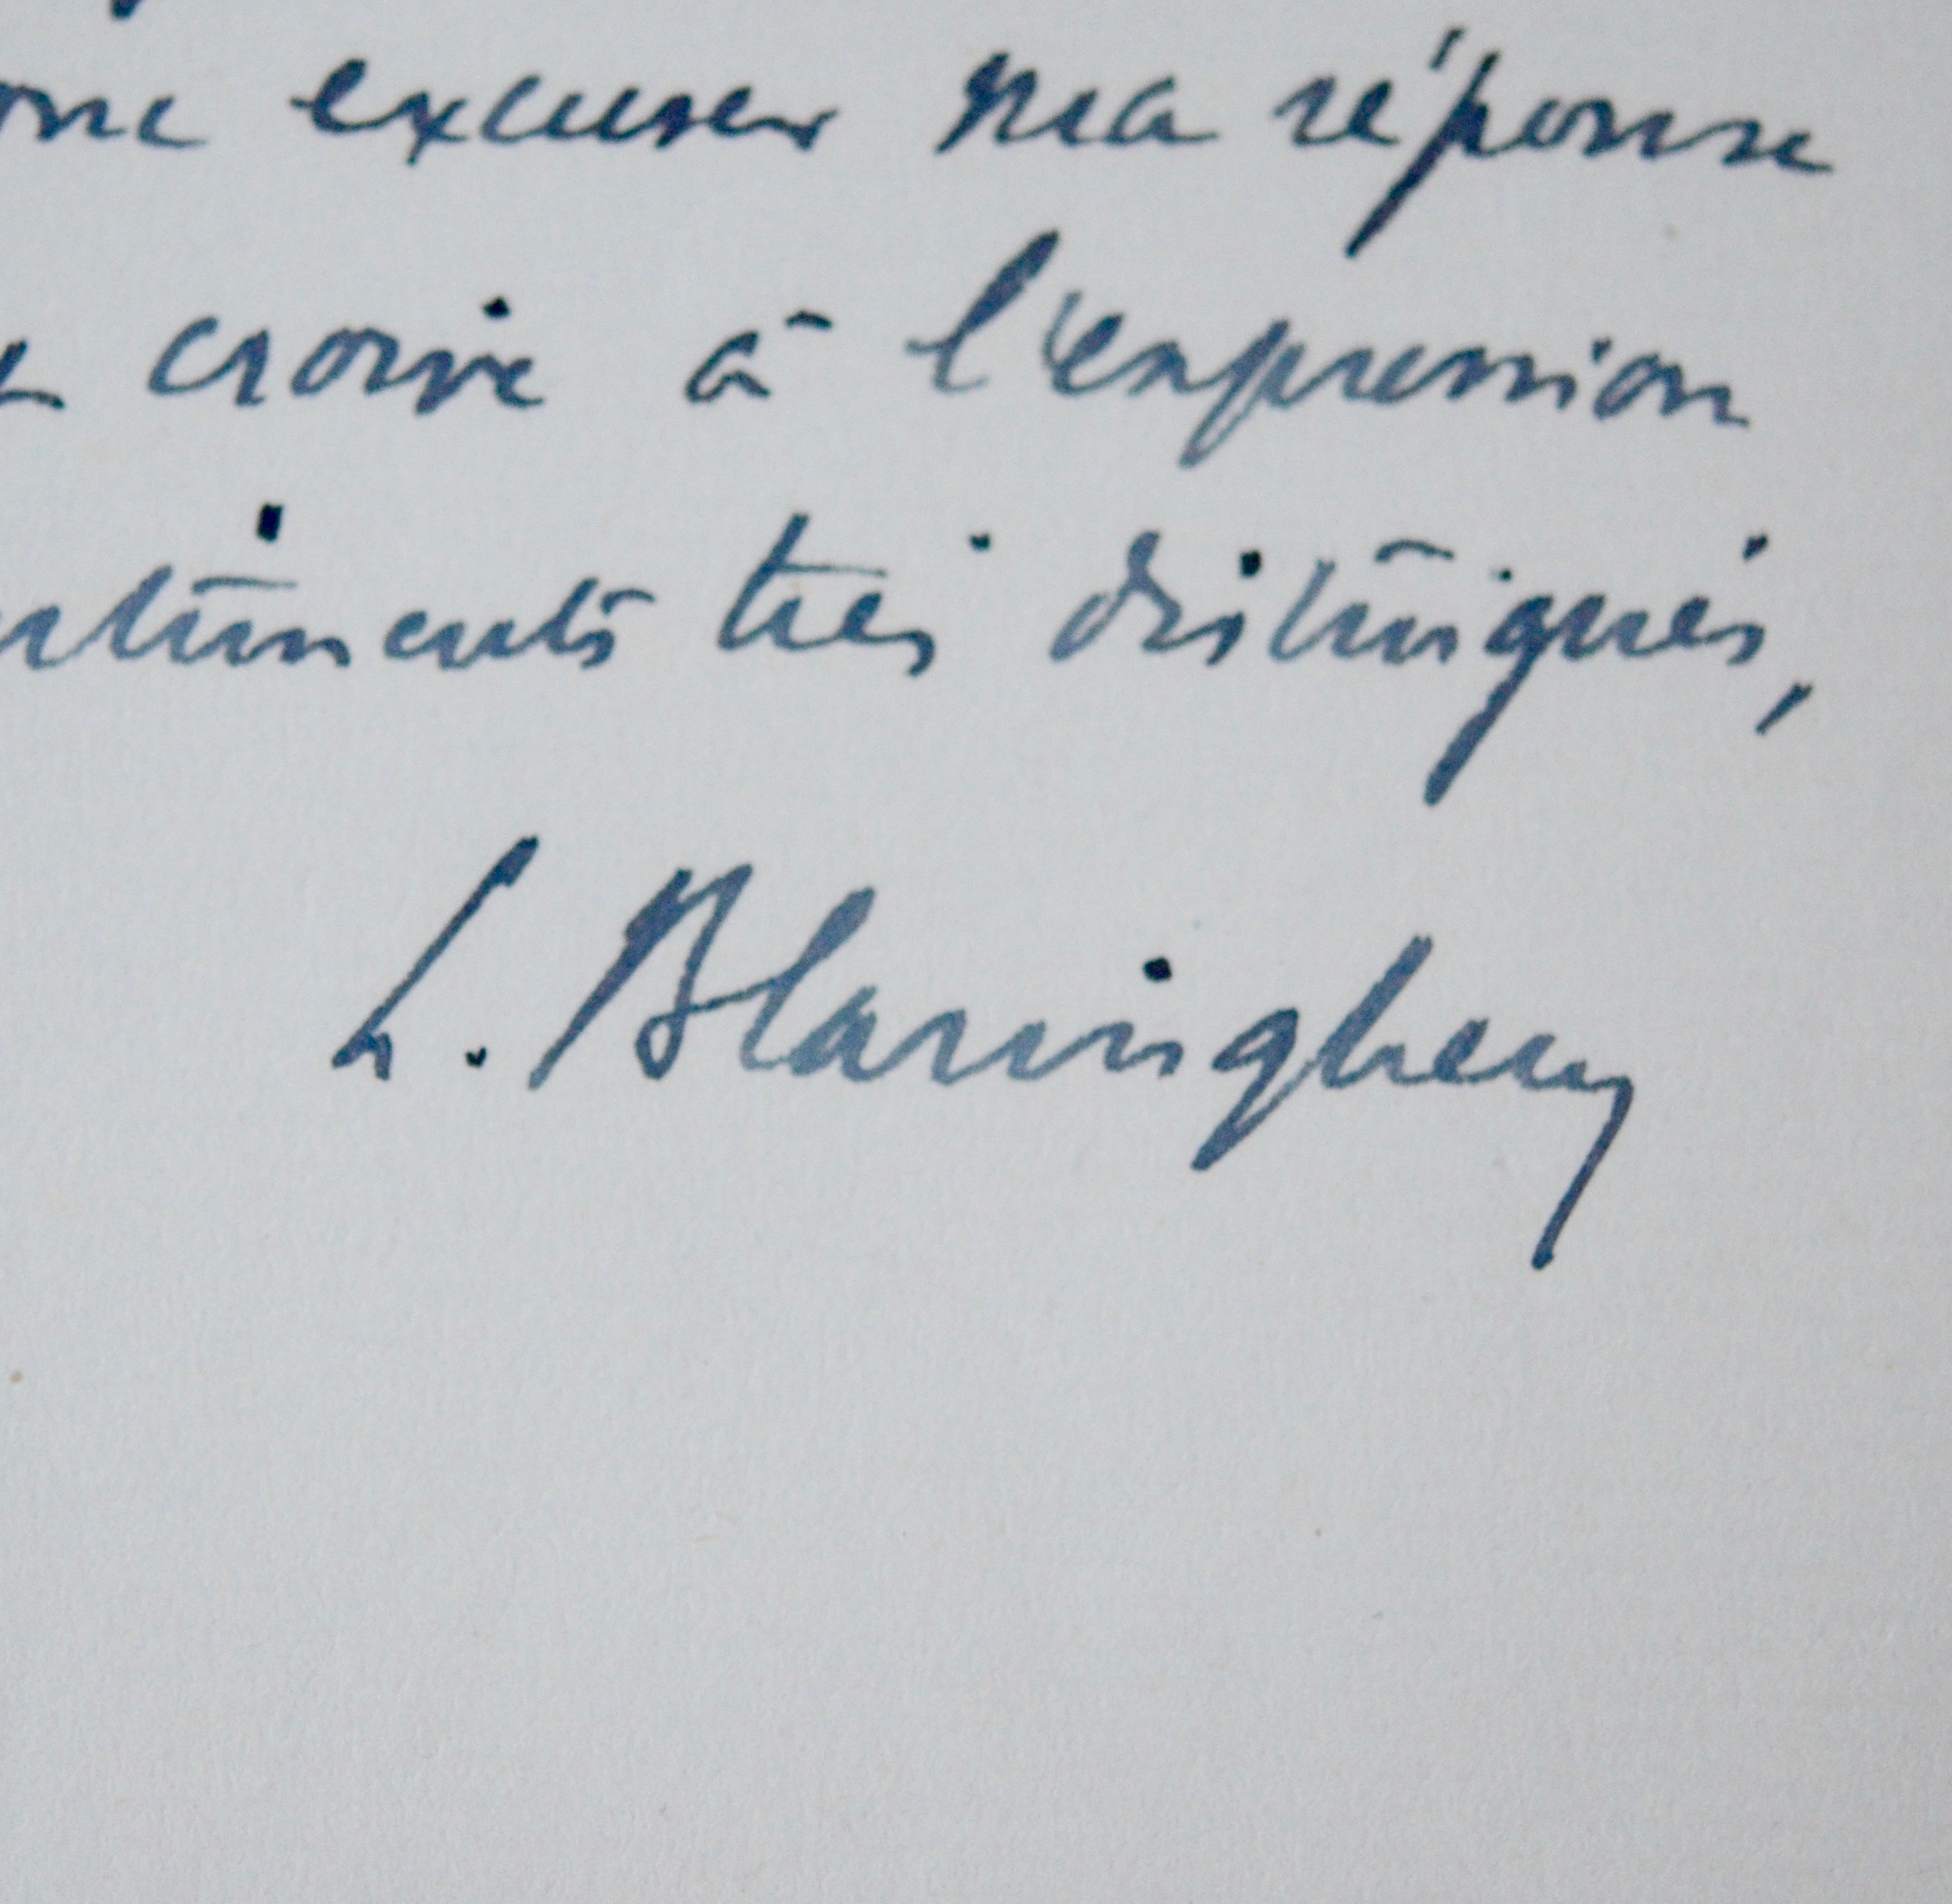 onc excuser ma réponse
croire à l'expression
ntiments très distingués,
L. Blaringhem